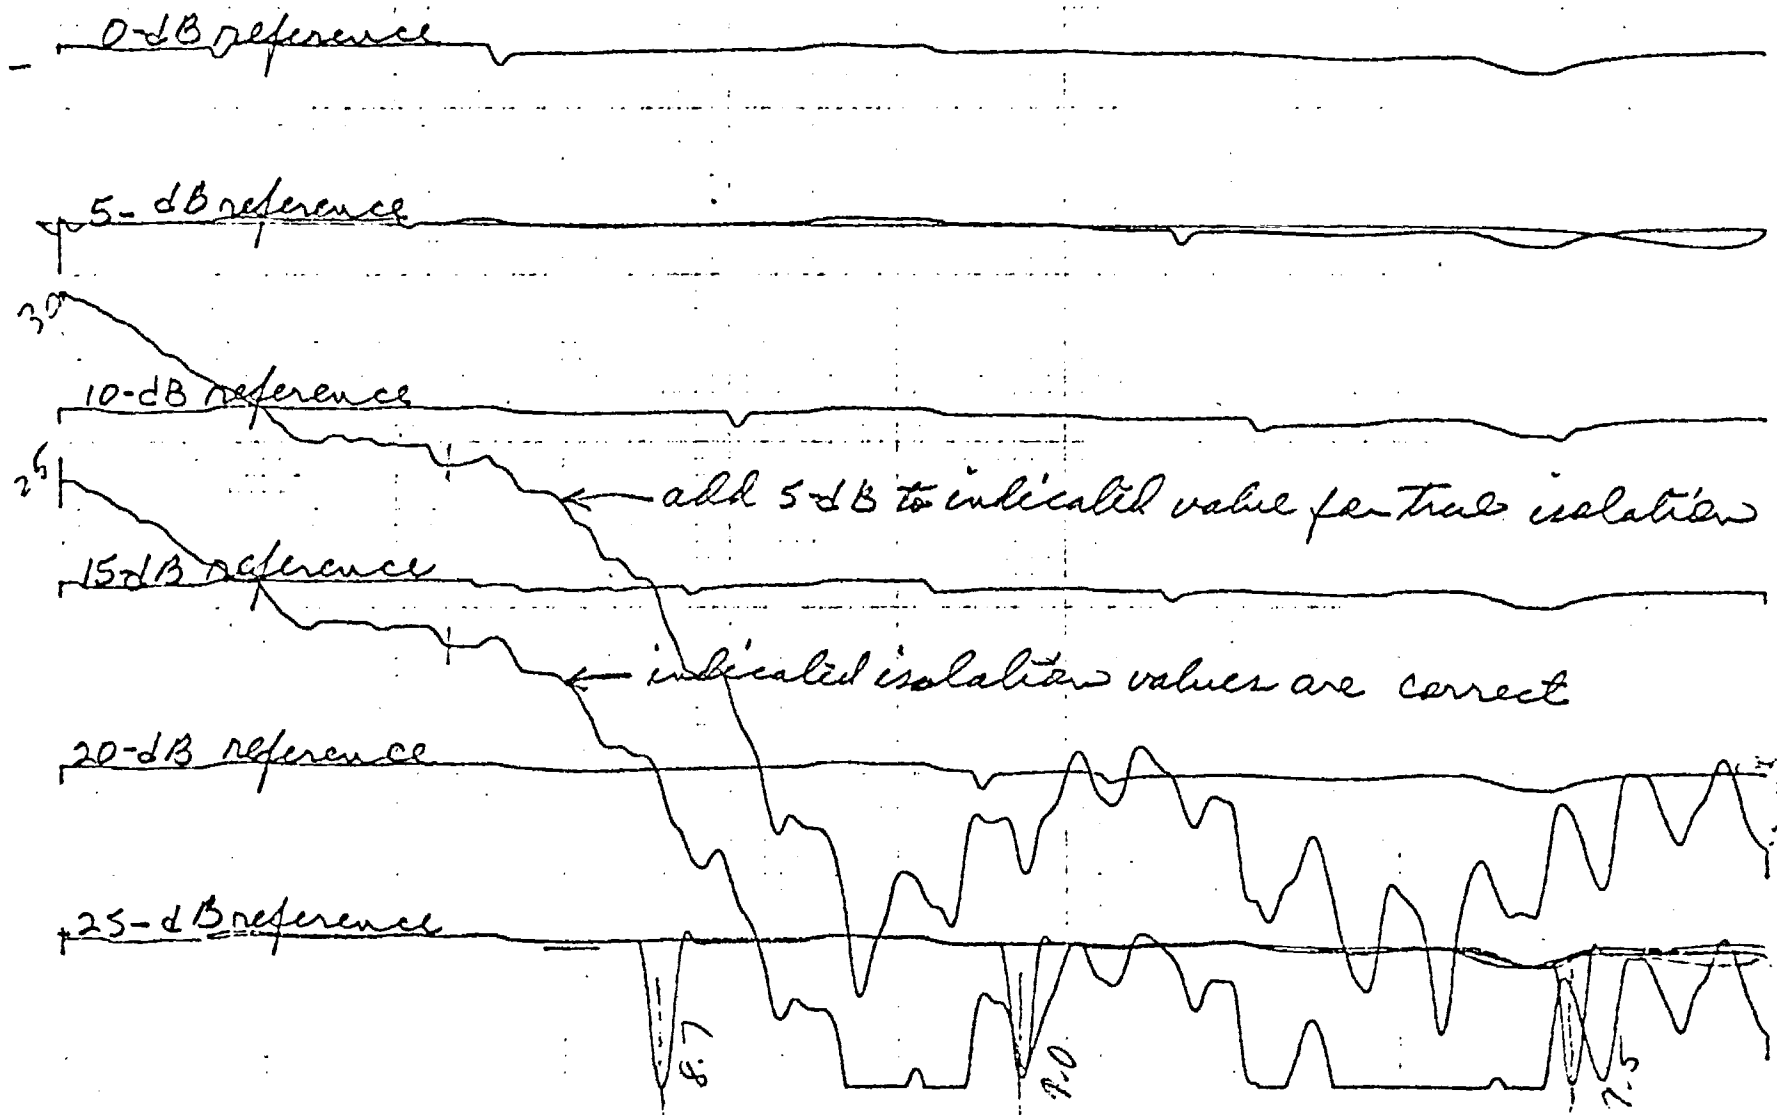 0-dB reference
5-dB reference
30
10-dB reference
25
add 5-dB to indicated value for true isolation
15-dB reference
indicated isolation values are correct
20-dB reference
25-dB reference
8.7
9.0